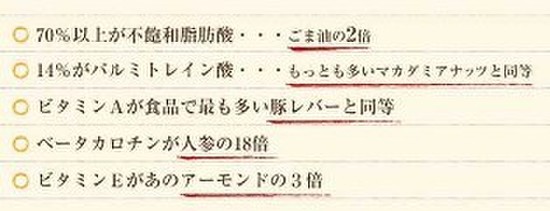 70%以上が不飽和脂肪酸・・・ごま油の2倍
14%がパルミトレイン酸・・・もっとも多いマカダミアナッツと同等
ビタミンAが食品で最も多い豚レバーと同等
ベータカロチンが人参の18倍
ビタミンEがあのアーモンドの3倍